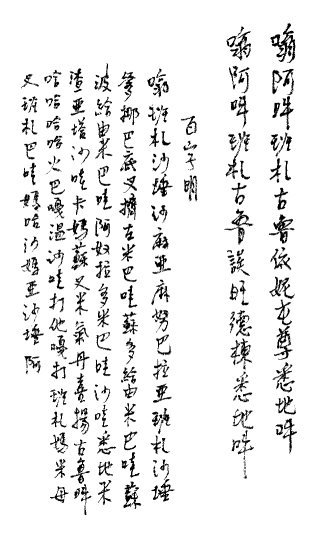 嗡阿吽班札古魯依妮尊悉地吽
嗡阿吽班札古魯談旺德棟悉地吽
百字明
嗡班札沙埵沙麻亞麻努巴拉亞班札沙埵
爹挪巴底叉擔古米巴哇蘇多給由米巴哇蘇
波給由米巴哇阿奴拉多米巴哇沙哇悉地米
渣亞塔沙哇卡媽蘇叉米氣丹喜揚古魯吽
哈哈哈哈火巴嘎溫沙哇打他嘎打班札媽米母
叉班札巴哇媽哈沙媽亞沙埵阿